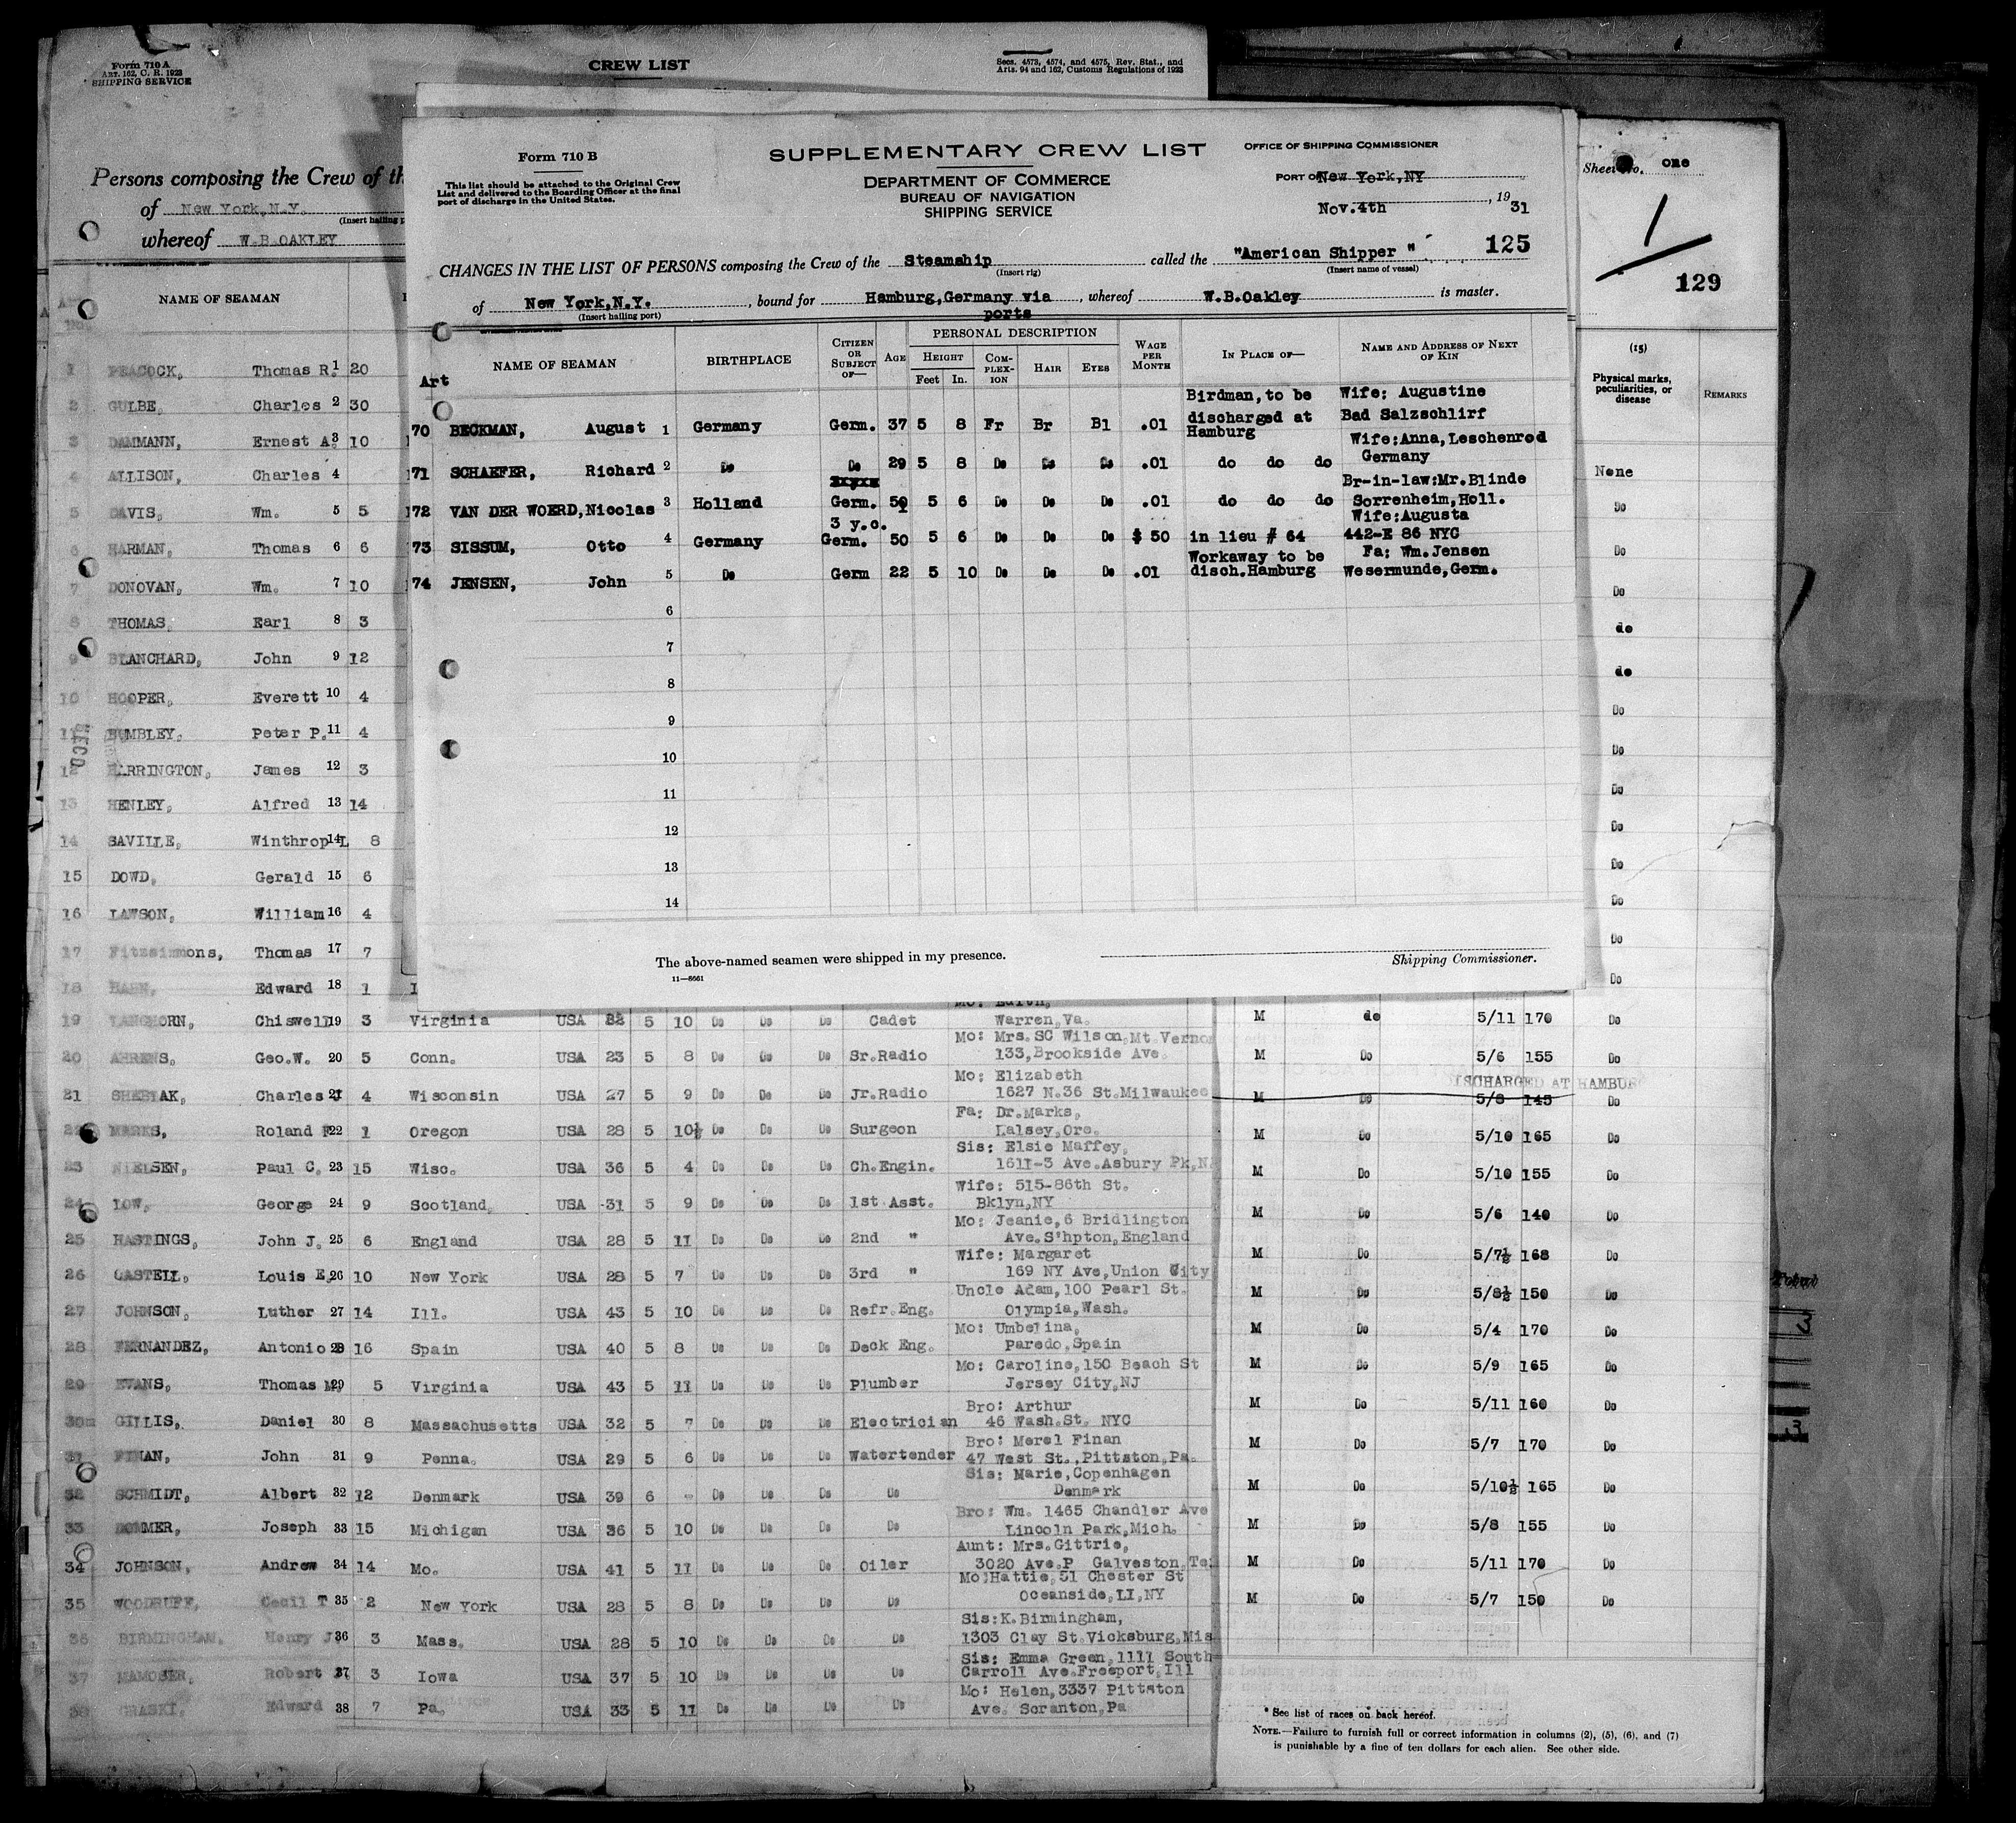 Form 710 A
ART. 162, C. R. 1923
SHIPPING SERVICE
CREW LIST
Secs. 4573, 4574, and 4575, Rev. Stat., and
Arts. 94 and 162, Customs Regulations of 1923
Persons composing the Crew of th
of New York, N.Y.
(Insert hailing p
whereof W.B.OAKLEY
NAME OF SEAMAN
1 PEACOCK, Thomas R. 1 20
2 GULBE, Charles 2 30
3 DAMMANN, Ernest A. 3 10
4 ALLISON, Charles 4
5 DAVIS, Wm. 5 5
6 HARMAN, Thomas 6 6
7 DONOVAN, Wm. 7 10
8 THOMAS, Earl 8 3
9 BLANCHARD, John 9 12
10 HOOPER, Everett 10 4
11 Peter P. 11 4
12 HARRINGTON, James 12 3
13 HENLEY, Alfred 13 14
14 SAVILLE, Winthrop L 14 8
15 DOWD, Gerald 15 6
16 LAWSON, William 16 4
17 Fitzsimmons, Thomas 17 7
18 Edward 18 1
Form 710 B
This list should be attached to the Original Crew
List and delivered to the Boarding Officer at the final
port of discharge in the United States.
SUPPLEMENTARY CREW LIST
DEPARTMENT OF COMMERCE
BUREAU OF NAVIGATION
SHIPPING SERVICE
OFFICE OF SHIPPING COMMISSIONER
PORT OF New York, NY
Nov. 4th, 19 31
125
CHANGES IN THE LIST OF PERSONS composing the Crew of the Steamship called the "American Shipper"
(Insert rig) (Insert name of vessel)
of New York, N.Y., bound for Hamburg, Germany via ports, whereof W.B.Oakley is master.
(Insert hailing port)
Art NAME OF SEAMAN BIRTHPLACE CITIZEN OR SUBJECT OF— AGE PERSONAL DESCRIPTION HEIGHT Feet In. COMPLEXION HAIR EYES WAGE PER MONTH IN PLACE OF— NAME AND ADDRESS OF NEXT OF KIN
Birdman, to be Wife: Augustine
discharged at Bad Salzschlirf
70 BECKMAN, August 1 Germany Germ. 37 5 8 Fr Br Bl .01 Hamburg
Wife:Anna, Leschenrod
71 SCHAEFER, Richard 2 Do Do 29 5 8 Do Do Do .01 do do do Germany
Br-in-law:Mr.Blinde
72 VAN DER WOERD, Nicolas 3 Holland Germ. 50 5 6 Do Do Do .01 do do do Sorrenheim, Holl.
3 y.c. Wife:Augusta
73 SISSUM, Otto 4 Germany Germ. 50 5 6 Do Do Do $ 50 in lieu # 64 442-E 86 NYC
Workaway to be Fa: Wm. Jensen
74 JENSEN, John 5 Do Germ 22 5 10 Do Do Do .01 disch. Hamburg Wesermunde, Germ.
6
7
8
9
10
11
12
13
14
The above-named seamen were shipped in my presence.
Shipping Commissioner.
11—8661
Sheet No. one
1
129
(15)
Physical marks,
peculiarities, or
disease
REMARKS
None
Do
Do
Do
do
do
Do
Do
Do
Do
Do
Do
Do
Do
19 Chiswell 19 3 Virginia USA 5 10 Do Do Do Cadet Warren, Va. M do 5/11 170 Do
Mo: Mrs. SC Wilson, Mt. Vernon
20 AHRENS, Geo. W. 20 5 Conn. USA 23 5 8 Do Do Do Sr. Radio 133, Brookside Ave. M Do 5/6 155 Do
Mo: Elizabeth
DISCHARGED AT HAMBURG
21 Charles 21 4 Wisconsin USA 27 5 9 Do Do Do Jr. Radio 1627 N. 36 St. Milwaukee M Do 5/8 145 Do
Fa: Dr. Marks,
22 MARKS, Roland F 22 1 Oregon USA 28 5 10½ Do Do Do Surgeon Lalsey, Ore. M Do 5/10 165 Do
Sis: Elsie Maffey,
23 NIELSEN, Paul C. 23 15 Wisc. USA 36 5 4 Do Do Do Ch. Engin. 1611-3 Ave. Asbury Pk, N M Do 5/10 155 Do
Wife: 515-86th St.
24 LOW, George 24 9 Scotland USA 31 5 9 Do Do Do 1st Asst. Bklyn, NY M Do 5/6 140 Do
Mo: Jeanie, 6 Bridlington
25 HASTINGS, John J. 25 6 England USA 28 5 11 Do Do Do 2nd " Ave. S'hpton, England M Do 5/7½ 168 Do
Wife: Margaret
26 CASTELL, Louis E. 26 10 New York USA 28 5 7 Do Do Do 3rd " 169 NY Ave, Union City
Uncle Adam, 100 Pearl St. M Do 5/8½ 150 Do
27 JOHNSON, Luther 27 14 Ill. USA 43 5 10 Do Do Do Refr. Eng. Olympia, Wash.
Mo: Umbelina, M Do 5/4 170 Do
28 FERNANDEZ, Antonio 28 16 Spain USA 40 5 8 Do Do Do Deck Eng. Paredo, Spain
Mo: Caroline, 150 Beach St M Do 5/9 165 Do
29 EVANS, Thomas M. 29 5 Virginia USA 43 5 11 Do Do Do Plumber Jersey City, NJ
Bro: Arthur M Do 5/11 160 Do
30 GILLIS, Daniel 30 8 Massachusetts USA 32 5 7 Do Do Do Electrician 46 Wash. St. NYC
Bro: Merel Finan M Do 5/7 170 Do
31 FINAN, John 31 9 Penna. USA 29 5 6 Do Do Do Watertender 47 West St., Pittston, Pa.
Sis: Marie, Copenhagen
32 SCHMIDT, Albert 32 12 Denmark USA 39 6 - Do Do Do Do Denmark M Do 5/10½ 165 Do
Bro: Wm. 1465 Chandler Ave
33 Joseph 33 15 Michigan USA 36 5 10 Do Do Do Do Lincoln Park, Mich. M Do 5/8 155 Do
Aunt: Mrs. Gittrie,
34 JOHNSON, Andrew 34 14 Mo. USA 41 5 11 Do Do Do Oiler 3020 Ave. P Galveston, Te M Do 5/11 170 Do
Mo: Hattie, 51 Chester St
35 WOODRUFF, Cecil T 35 2 New York USA 28 5 8 Do Do Do Do Oceanside, LI, NY M Do 5/7 150 Do
Sis: K. Birmingham,
36 BIRMINGHAM, Henry J. 36 3 Mass. USA 28 5 10 Do Do Do Do 1303 Clay St. Vicksburg, Mis
Sis: Emma Green, 1111 South
37 Robert 37 3 Iowa USA 37 5 10 Do Do Do Do Carroll Ave. Freeport, Ill
Mo: Helen, 3337 Pittston
38 Edward 38 7 Pa. USA 33 5 11 Do Do Do Do Ave. Scranton, Pa
* See list of races on back hereof.
NOTE.—Failure to furnish full or correct information in columns (2), (5), (6), and (7)
is punishable by a fine of ten dollars for each alien. See other side.
Total
3
3